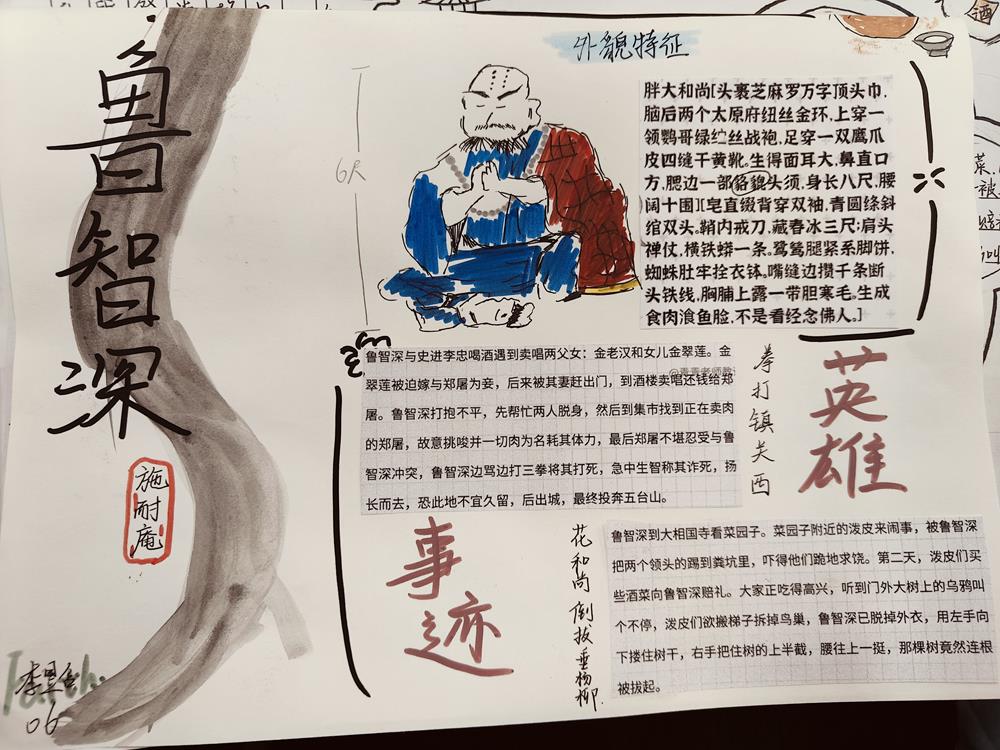 鲁智深
施耐庵
外貌特征
6尺
胖大和尚[头裹芝麻罗万字顶头巾,
脑后两个太原府纽丝金环,上穿一
领鹦哥绿纻丝战袍,足穿一双鹰爪
皮四缝干黄靴。生得面耳大,鼻直口
方,腮边一部貉貌头须,身长八尺,腰
阔十围][皂直缀背穿双袖,青圆绦斜
绾双头。鞘内戒刀,藏春冰三尺;肩头
禅仗,横铁蟒一条。鹭鸶腿紧系脚饼,
蜘蛛肚牢拴衣钵。嘴缝边攒千条断
头铁线,胸脯上露一带胆寒毛。生成
食肉湌鱼脸,不是看经念佛人。]
鲁智深与史进李忠喝酒遇到卖唱两父女：金老汉和女儿金翠莲。金
翠莲被迫嫁与郑屠为妾，后来被其妻赶出门，到酒楼卖唱还钱给郑
屠。鲁智深打抱不平，先帮忙两人脱身，然后到集市找到正在卖肉
的郑屠，故意挑唆并一切肉为名耗其体力，最后郑屠不堪忍受与鲁
智深冲突，鲁智深边骂边打三拳将其打死，急中生智称其诈死，扬
长而去，恐此地不宜久留，后出城，最终投奔五台山。
拳打镇关西
英雄
事迹
花和尚倒拔垂杨柳
鲁智深到大相国寺看菜园子。菜园子附近的泼皮来闹事，被鲁智深
把两个领头的踢到粪坑里，吓得他们跪地求饶。第二天，泼皮们买
些酒菜向鲁智深赔礼。大家正吃得高兴，听到门外大树上的乌鸦叫
个不停，泼皮们欲搬梯子拆掉鸟巢，鲁智深已脱掉外衣，用左手向
下搂住树干，右手把住树的上半截，腰往上一挺，那棵树竟然连根
被拔起。
06
酒